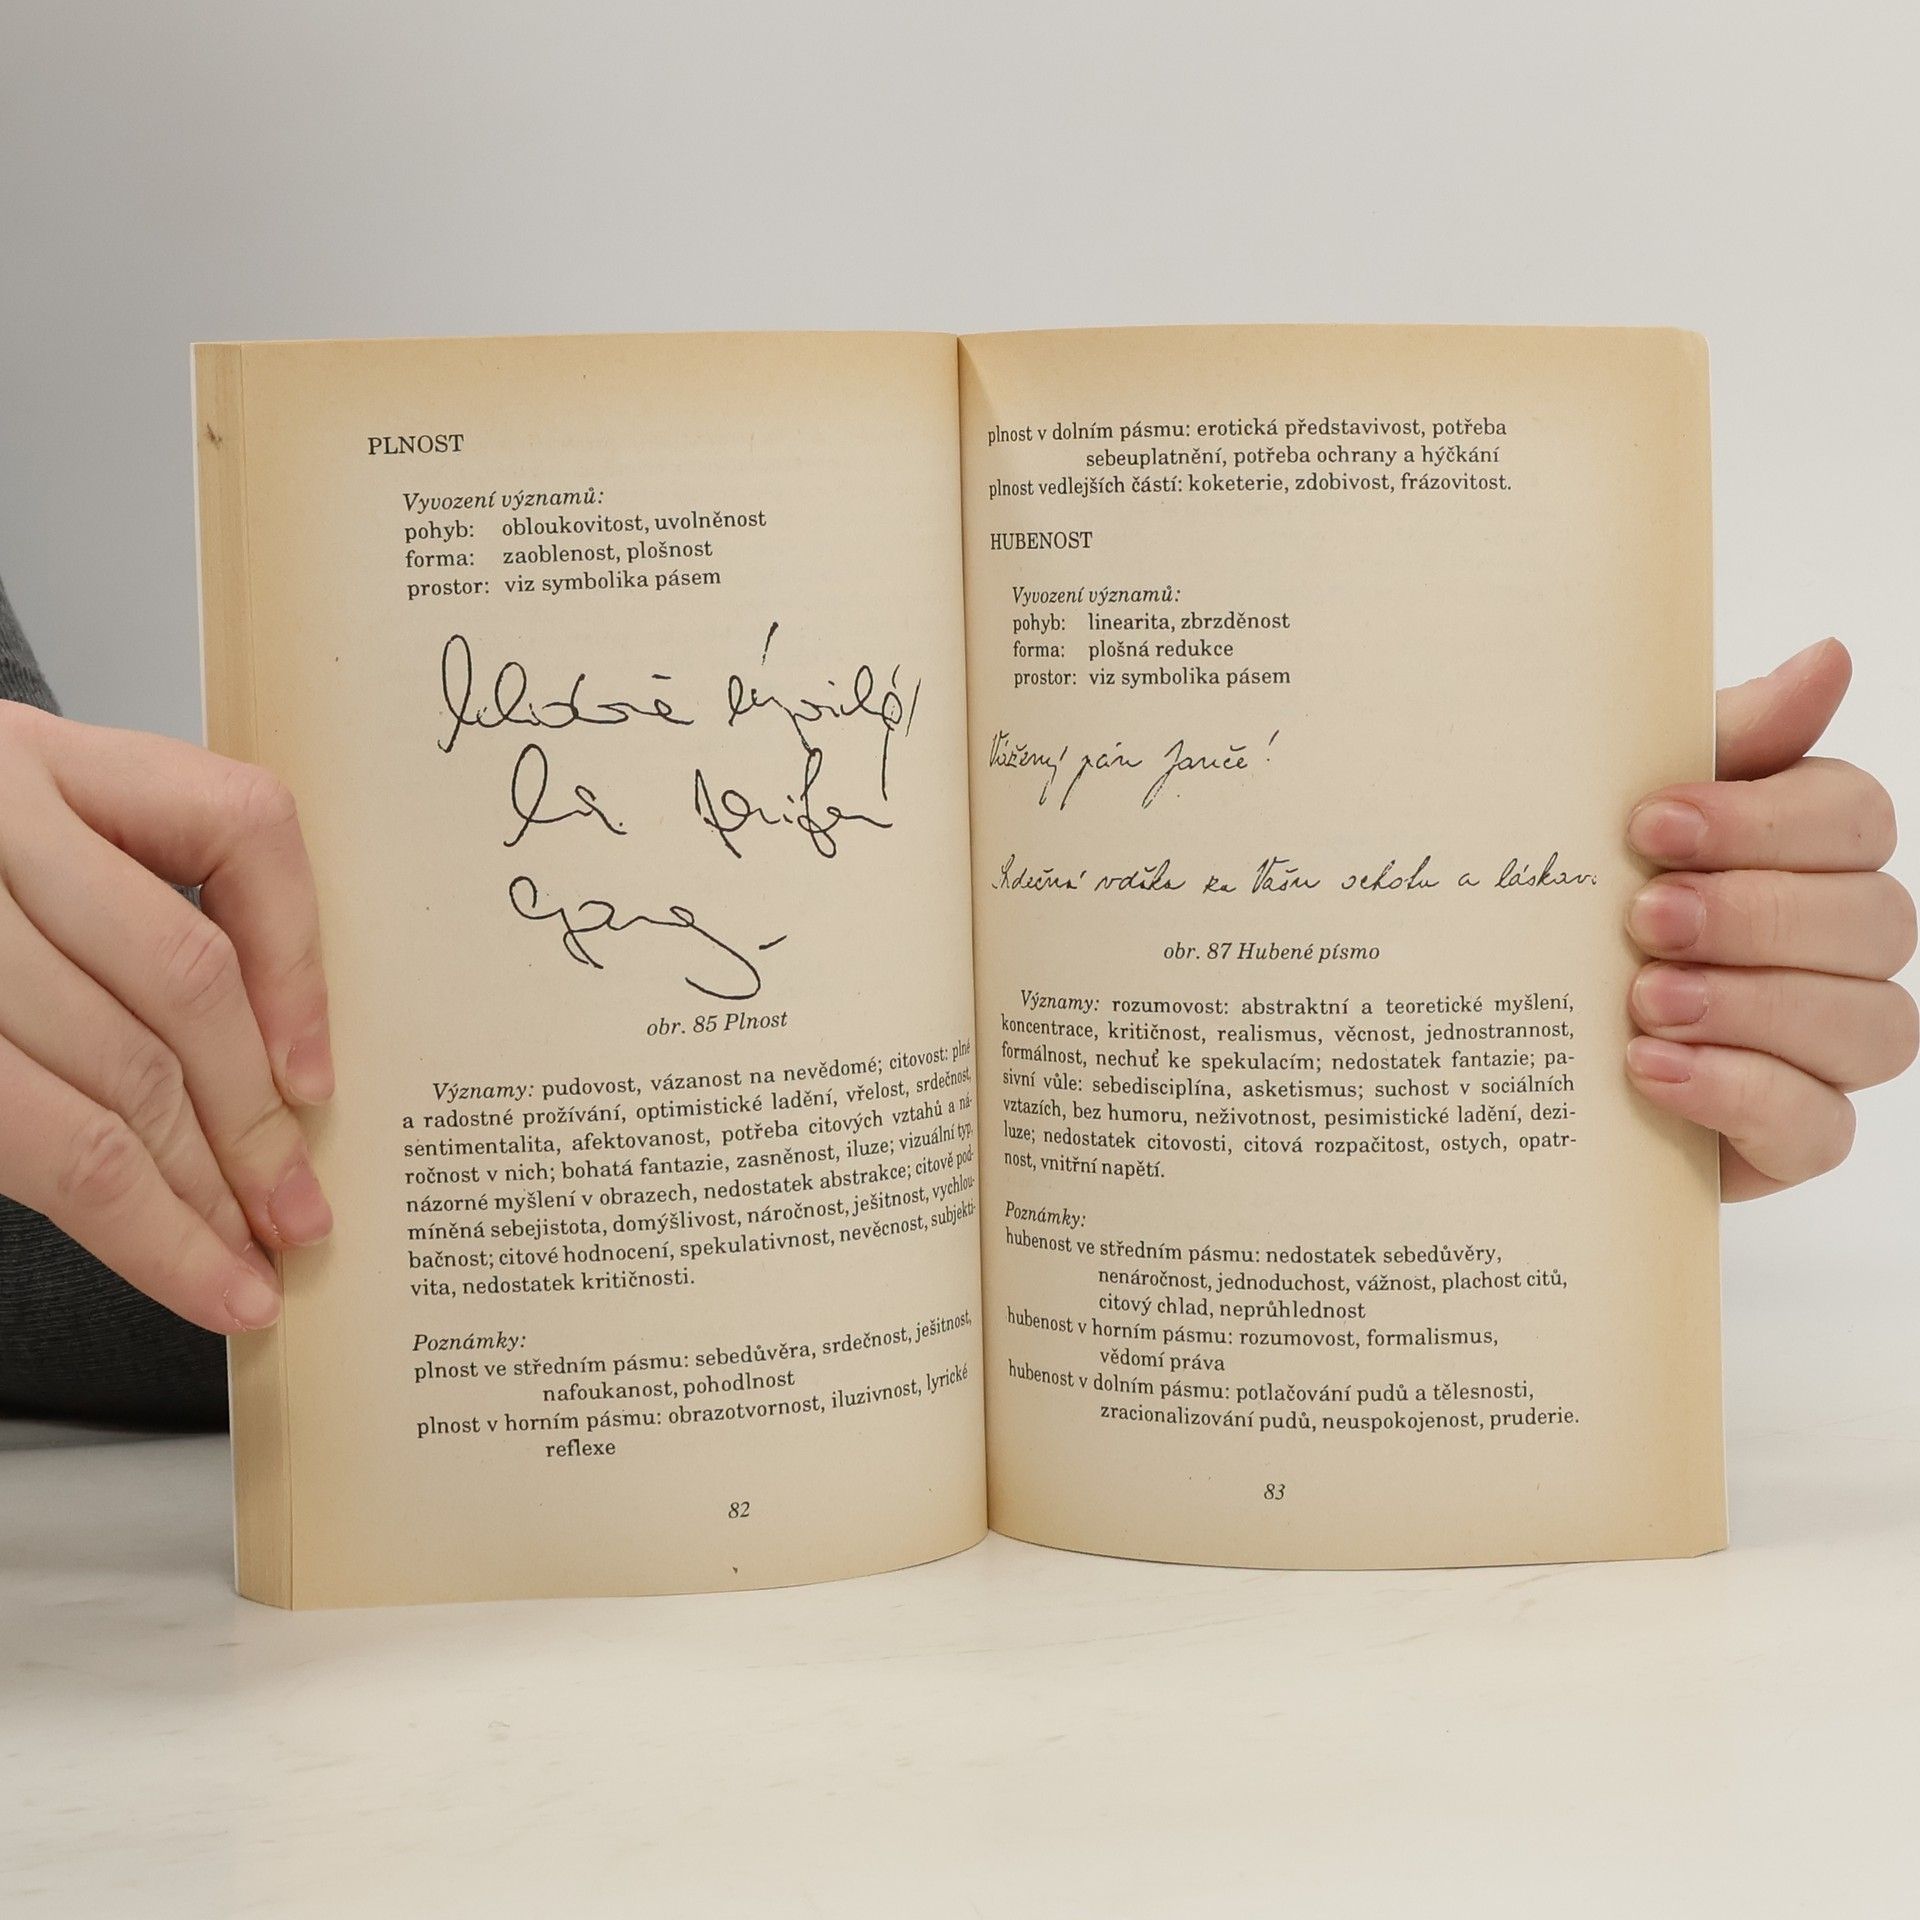 PLNOST
Vyvození významů:
pohyb: obloukovitost, uvolněnost
forma: zaoblenost, plošnost
prostor: viz symbolika pásem
obr. 85 Plnost
Významy: pudovost, vázanost na nevědomé; citovost: plné
a radostné prožívání, optimistické ladění, vřelost, srdečnost,
sentimentalita, afektovanost, potřeba citových vztahů a ná-
ročnost v nich; bohatá fantazie, zasněnost, iluze; vizuální typ,
názorné myšlení v obrazech, nedostatek abstrakce; citově pod-
míněná sebejistota, domýšlivost, náročnost, ješitnost, vychlou-
bačnost; citové hodnocení, spekulativnost, nevěcnost, subjekti-
vita, nedostatek kritičnosti.
Poznámky:
plnost ve středním pásmu: sebedůvěra, srdečnost, ješitnost,
nafoukanost, pohodlnost
plnost v horním pásmu: obrazotvornost, iluzivnost, lyrické
reflexe
82
plnost v dolním pásmu: erotická představivost, potřeba
sebeuplatnění, potřeba ochrany a hýčkání
plnost vedlejších částí: koketerie, zdobivost, frázovitost.
HUBENOST
Vyvození významů:
pohyb: linearita, zbrzděnost
forma: plošná redukce
prostor: viz symbolika pásem
Vážený pán Janče!
Srdečná vďaka za Vašu ochotu a láskavo
obr. 87 Hubené písmo
Významy: rozumovost: abstraktní a teoretické myšlení,
koncentrace, kritičnost, realismus, věcnost, jednostrannost,
formálnost, nechuť ke spekulacím; nedostatek fantazie; pa-
sivní vůle: sebedisciplína, asketismus; suchost v sociálních
vztazích, bez humoru, neživotnost, pesimistické ladění, dezi-
luze; nedostatek citovosti, citová rozpačitost, ostych, opatr-
nost, vnitřní napětí.
Poznámky:
hubenost ve středním pásmu: nedostatek sebedůvěry,
nenáročnost, jednoduchost, vážnost, plachost citů,
citový chlad, neprůhlednost
hubenost v horním pásmu: rozumovost, formalismus,
vědomí práva
hubenost v dolním pásmu: potlačování pudů a tělesnosti,
zracionalizování pudů, neuspokojenost, pruderie.
83